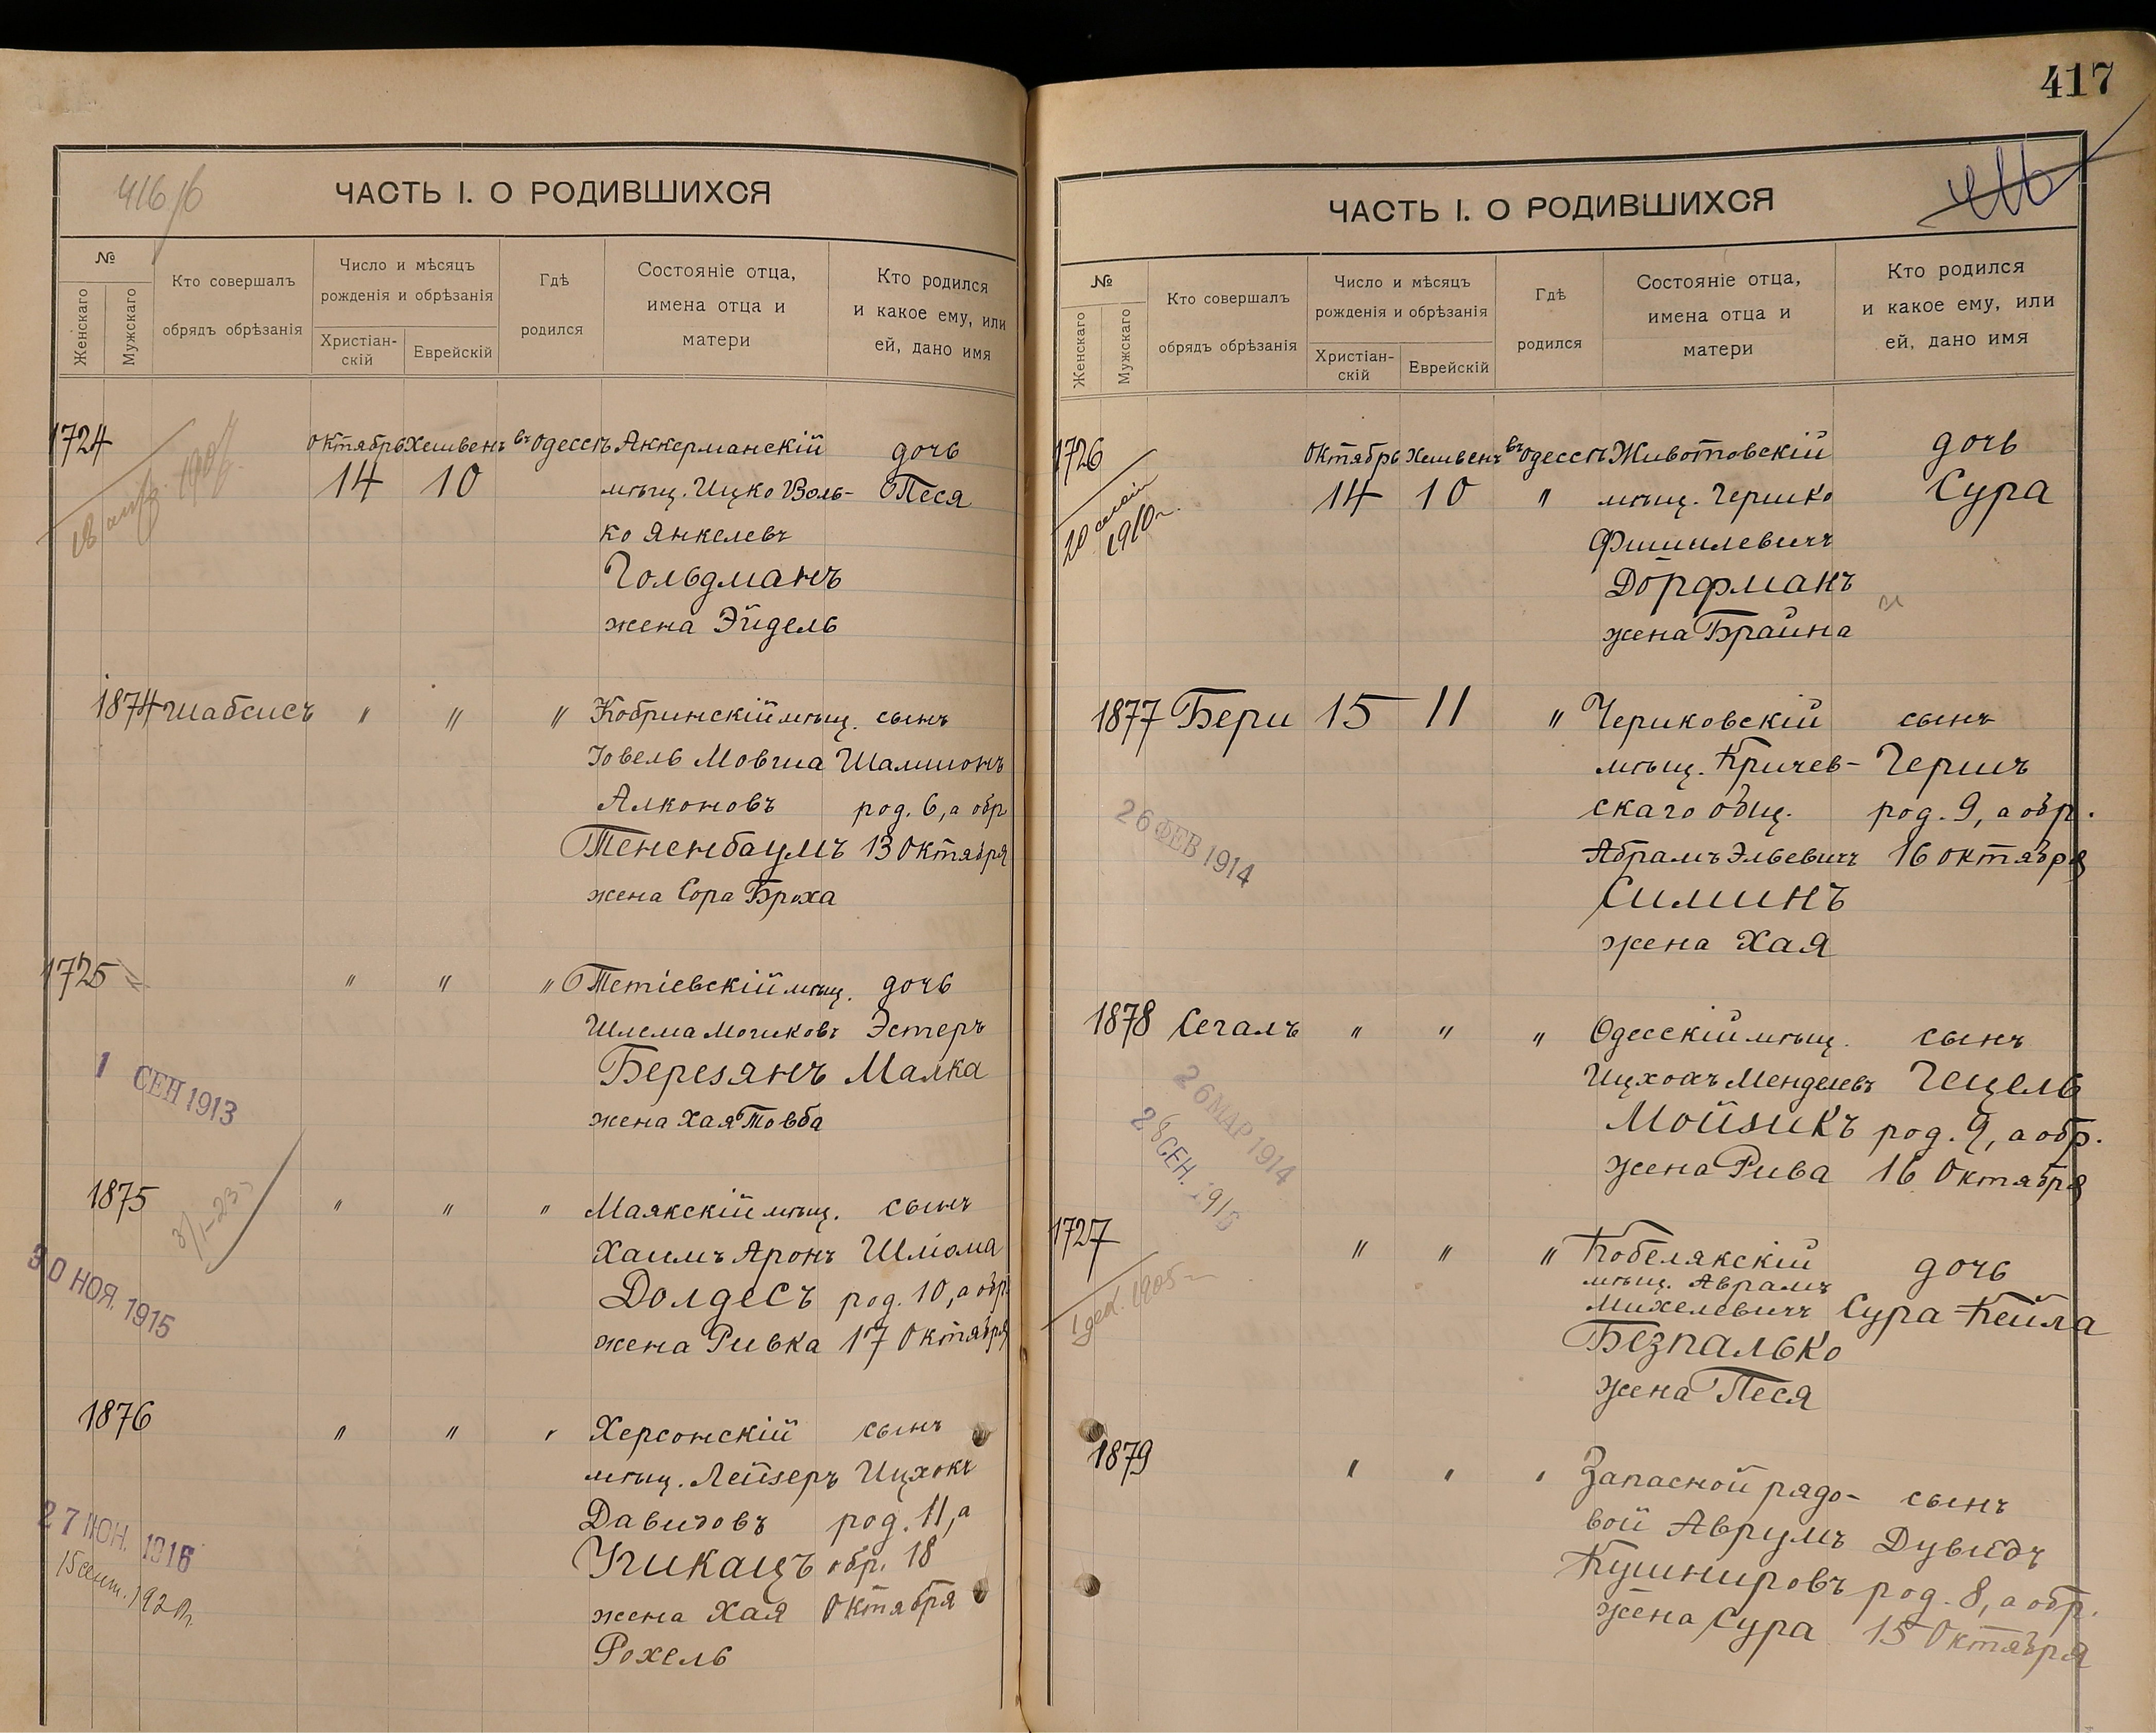 417
416/б
ЧАСТЬ I. О РОДИВШИХСЯ
№
Женскаго
Мужскаго
Кто совершалъ
обрядъ обрѣзанія
Число и мѣсяцъ
рожденія и обрѣзанія
Христіан-
скій
Еврейскій
Гдѣ
родился
Состояніе отца,
имена отца и
матери
Кто родился
и какое ему, или
ей, дано имя
1724 Октябрь Хешвенъ въ Одессѣ Аккерманскій дочь
14 10 мѣщ. Ицко Воль- Песя
ко Янкелевъ
Гольдманъ
жена Эйдель
1874 Шабсисъ " " " Кобринскій мѣщ. сынъ
Іовель Мовша Шамшонъ
Алконовъ род. 6, а обр
Тененбаумъ 13 Октября
жена Сора Броха
1725 " " " Тетіевскій мѣщ. дочь
Шлема Мошковъ Эстеръ
Березянъ Малка
1 СЕН 1913
жена Хая Товба
1875 " " " Маякскій мѣщ. сынъ
Хаимъ Аронъ Шліома
Долдесъ род. 10, а обр
30 НОЯ. 1915
жена Ривка 17 Октября
1876 " " " Херсонскій сынъ
мѣщ. Лейзеръ Ицхокъ
Давидовъ род. 11, а
27 ІЮН. 1916
Учикацъ обр. 18
15 сент. 1920г.
жена Хая Октября
Рохель
ЧАСТЬ I. О РОДИВШИХСЯ
416
№
Женскаго
Мужскаго
Кто совершалъ
обрядъ обрѣзанія
Число и мѣсяцъ
рожденія и обрѣзанія
Христіан-
скій
Еврейскій
Гдѣ
родился
Состояніе отца,
имена отца и
матери
Кто родился
и какое ему, или
ей, дано имя
1726 Октябрь Хешвенъ въ Одессѣ Животовскій дочь
14 10 " мѣщ. Гершко Сура
1910г.
Фишилевичъ
Дорфманъ
жена Брайна
1877 Бери 15 11 " Чериковскій сынъ
мѣщ. Кричев- Гершъ
скаго общ. род. 9, а обр.
26 ФЕВ 1914
Абрамъ Эльевичъ 16 Октября
Симинъ
жена Хая
1878 Сегалъ " " " Одесскій мѣщ. сынъ
Ицхокъ Менделевъ Гецель
26 МАР 1914
Мойзикъ род. 9, а обр.
28 СЕН. 1915
жена Рива 16 Октября
1727 " " " Кобелякскій дочь
мѣщ. Аврамъ
Михелевичъ Сура-Кейла
1 дек. 1905
Безпалько
жена Песя
1879 " " " Запасной рядо- сынъ
вой Аврумъ Дувидъ
Кушнировъ род. 8, а обр.
жена Сура 15 Октября